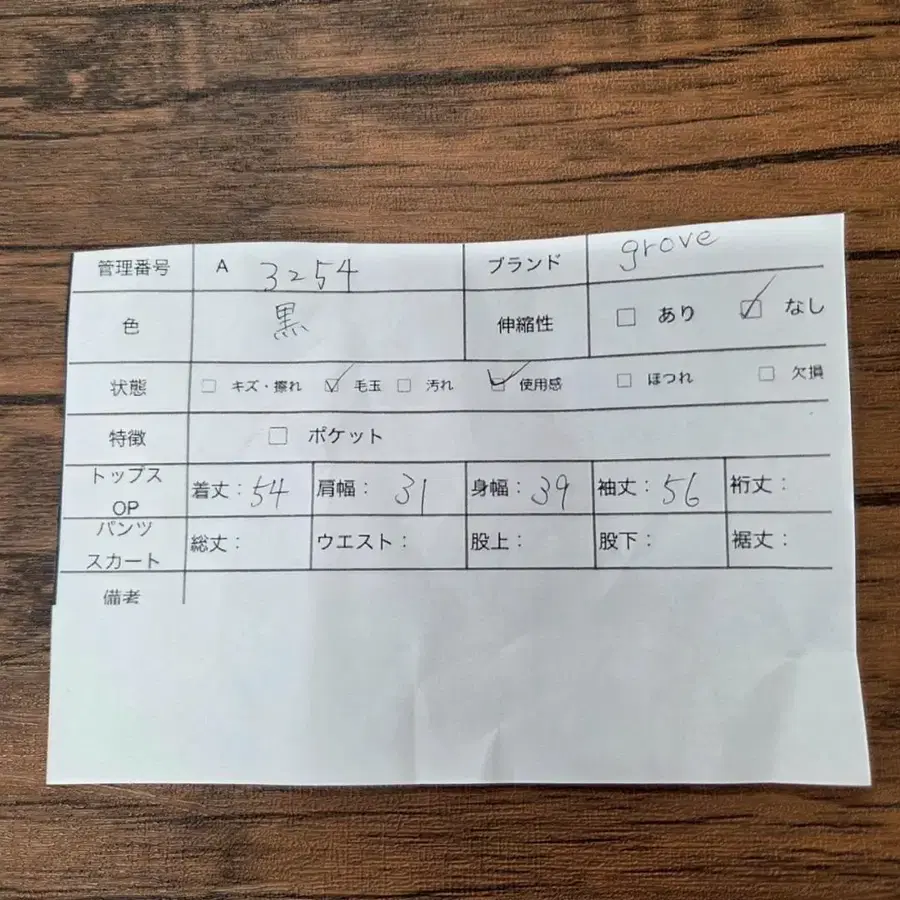 管理番号 A 3254 ブランド grove
色 黒 伸縮性 □ あり ☑ なし
状態 □ キズ・擦れ ☑ 毛玉 □ 汚れ ☑ 使用感 □ ほつれ □ 欠損
特徴 □ ポケット
トップス
OP 着丈: 54 肩幅: 31 身幅: 39 袖丈: 56 裄丈:
パンツ
スカート 総丈: ウエスト: 股上: 股下: 裾丈:
備考